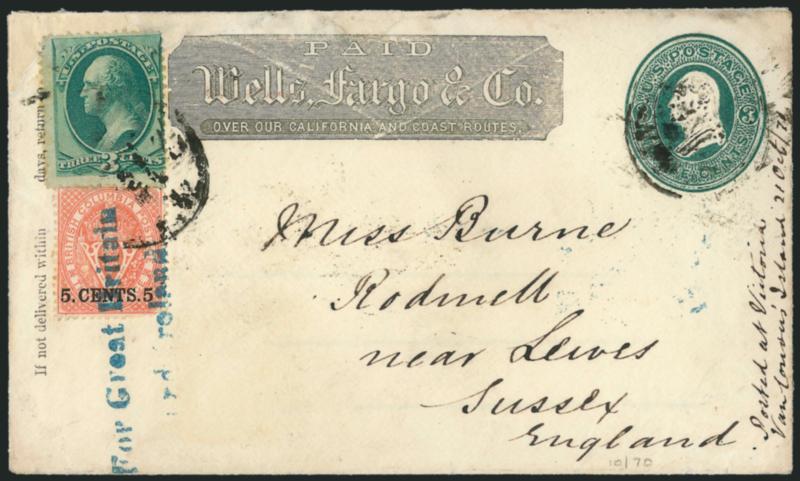 U.S. POSTAGE
THREE 3 CENTS
BRITISH COLUMBIA POSTAGE
5. CENTS. 5
PAID
Wells, Fargo & Co.
OVER OUR CALIFORNIA AND COAST ROUTES.
U.S. POSTAGE
3 CENTS
If not delivered within days, return to
For Great Britain
and Ireland
Miss Burne
Rodmell
near Lewes
Sussex
England
10/70
Posted at Victoria
Vancouvers Island 21 Oct/70